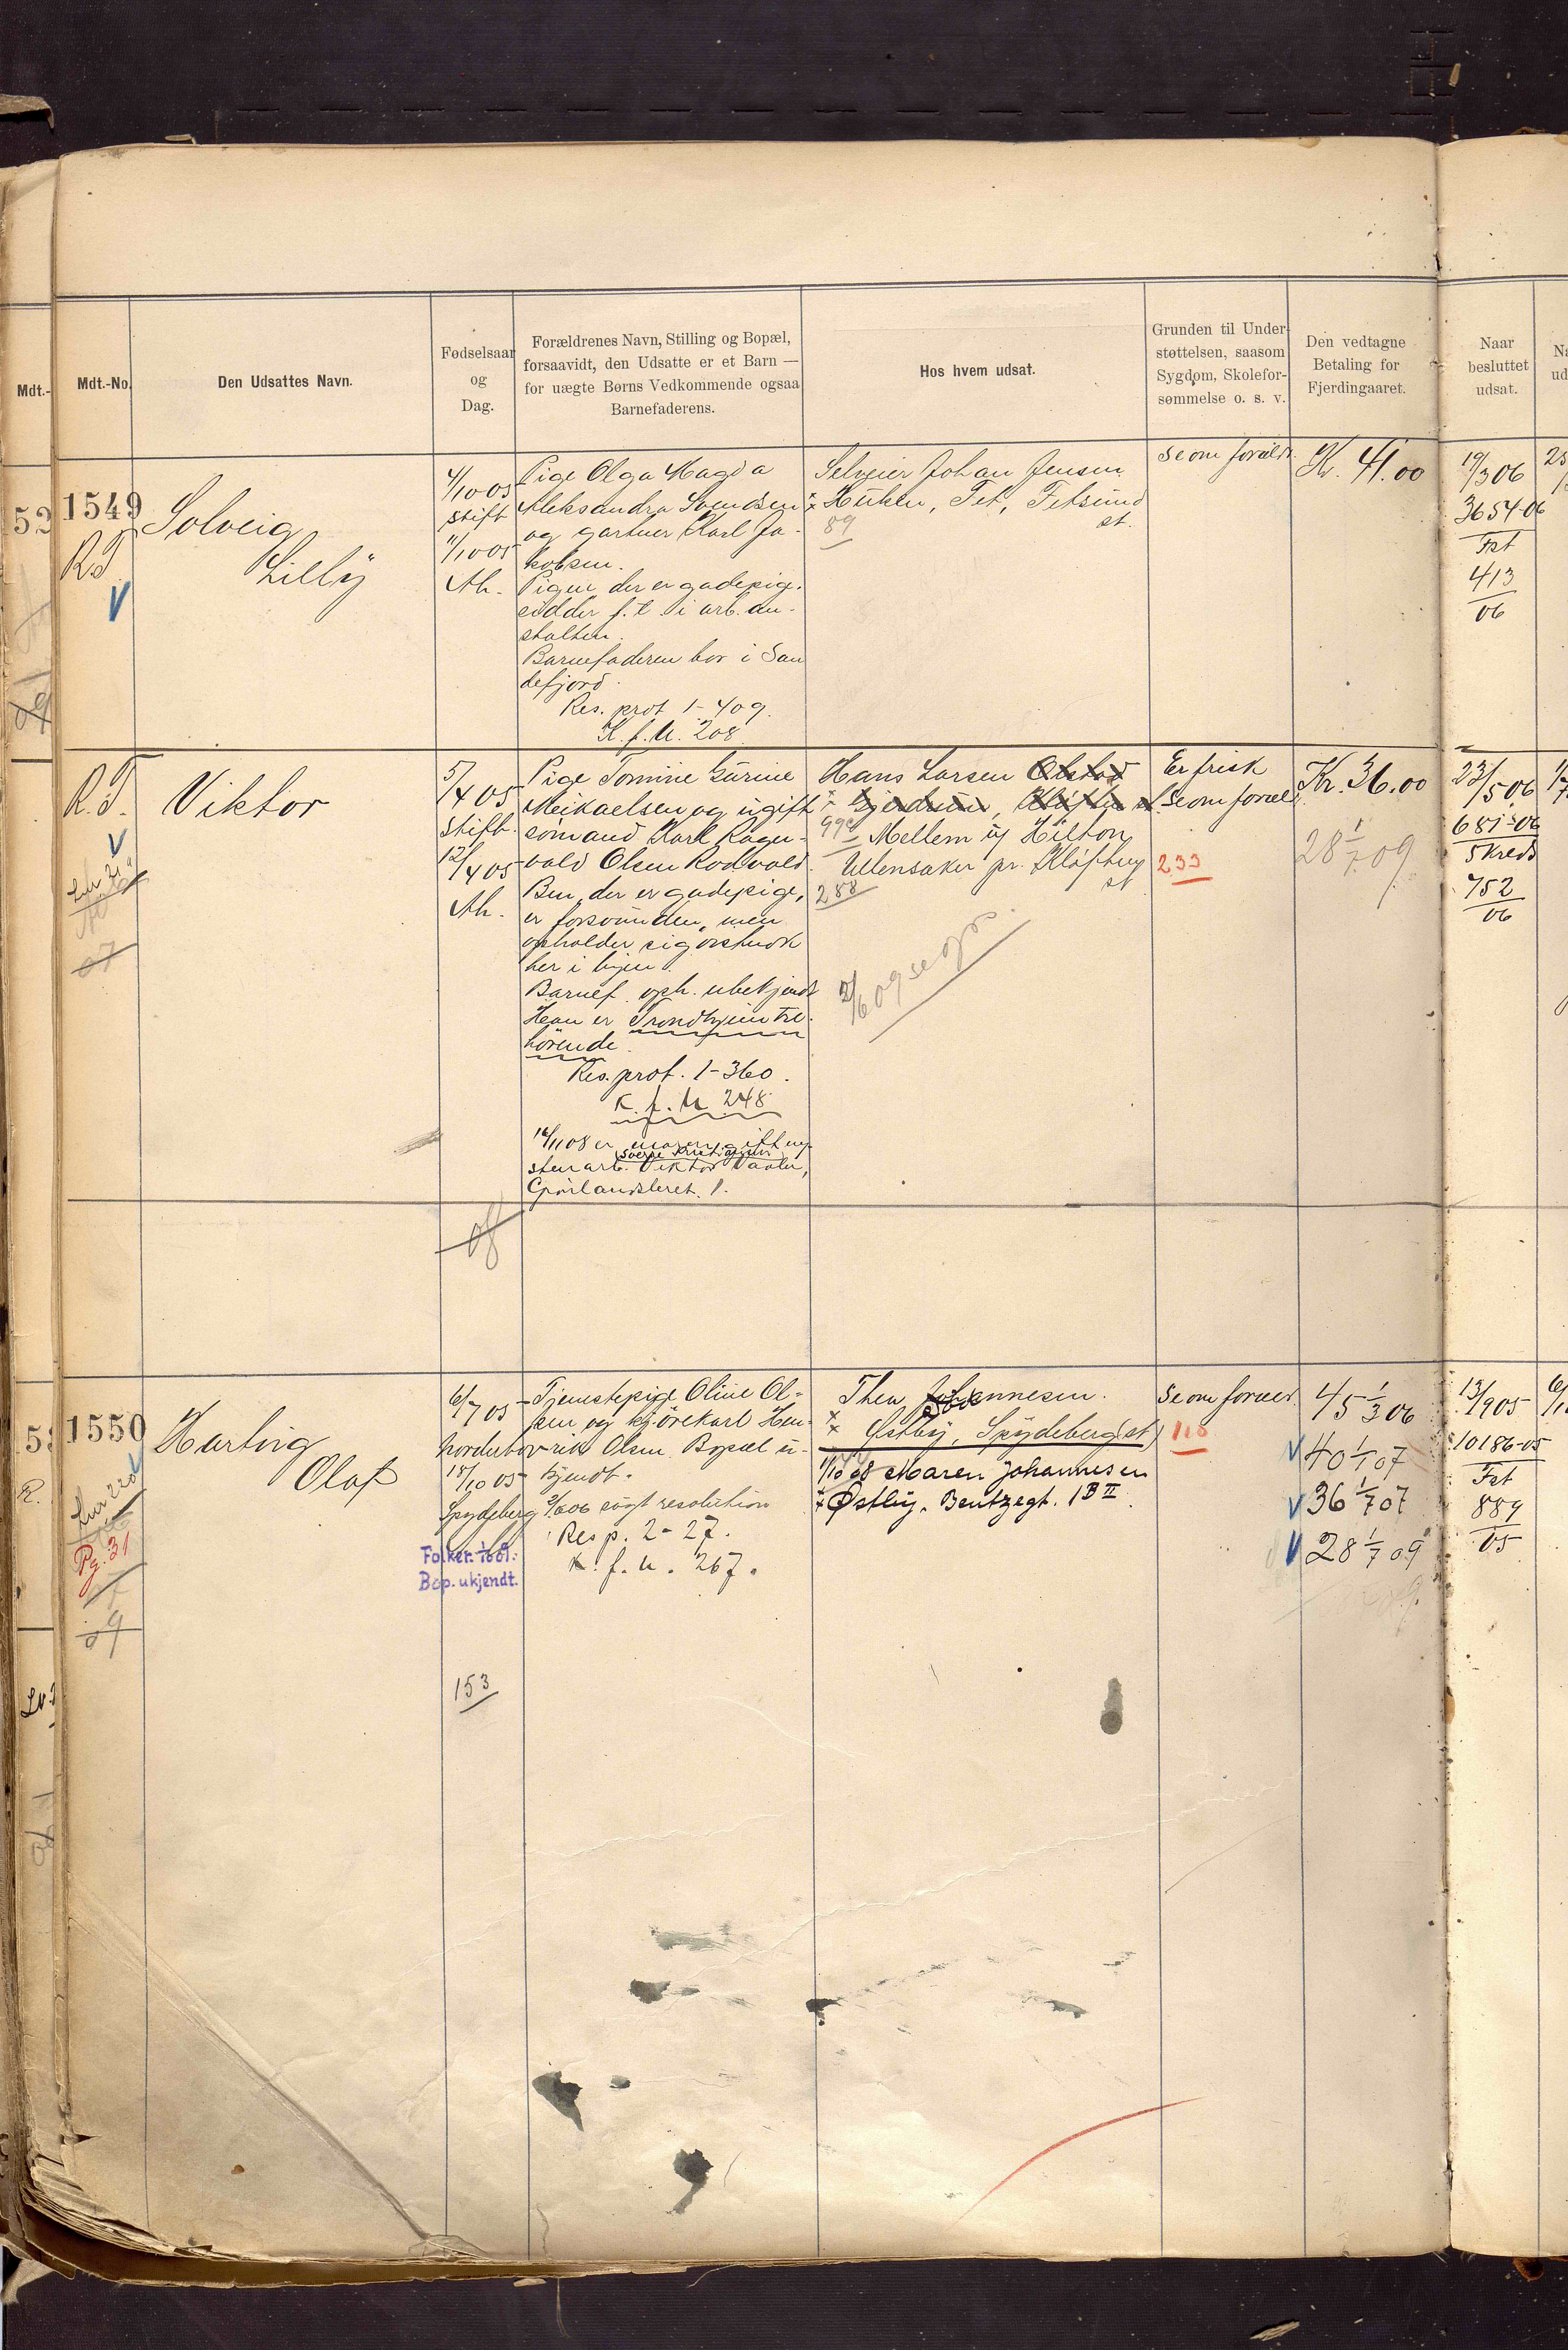 Mdt.-
Mdt.-No.
Den Udsattes Navn.
Fødselsaar
og
Dag.
Forældrenes Navn, Stilling og Bopæl,
forsaavidt, den Udsatte er et Barn —
for uægte Børns Vedkommende ogsaa
Barnefaderens.
Hos hvem udsat.
Grunden til Under-
støttelsen, saasom
Sygdom, Skolefor-
sømmelse o. s. v.
Den vedtagne
Betaling for
Fjerdingaaret.
Naar
besluttet
udsat.
52
1549
R.T.
V
Solveig
Lilly
4/10 05
Stift
11/10 05
Ak.
Pige Olga Magda
Aleksandra Svendsen
og gartner Karl Ja-
kobsen.
Pigen der er gadepige.
sidder f.t. i arb. an-
stalten.
Barnefaderen bor i San
defjord.
Res. prot 1-409.
K. f. U. 208
Selveier Johan Jensen
Fet, Fetsund
st.
89
Se om foræld.
Kr. 41.00
19/3 06
3654-06
Fst
413
06
R.T.
V
07
Viktor
5/4 05
Stift.
12/4 05
Ak.
Pige Tomine Gurine
Meikaelsen og ugift
sømand Karl Ragn-
vald Olsen Rodvold.
Ben, der er gadepige,
er forsvunden, men
opholder sig
her i byen.
Barnef. oph. ubekjendt
Han er Trondhjem til-
hørende.
Res. prot. 1-360.
K. f. U. 248
Viktor
Grønlandsleret 1.
Hans Larsen Olstad
Mellem uj Hilton
Ullensaker pr. Kløften
st
99
288
Er frisk
Se om foræld.
233
Kr. 36.00
28 1/7 09
23/5 06
681-06
5 Kreds
752
06
08
1550
V
Pg. 31
09
Hartvig
Olaf
6/7 05
18/10 05
Spydeberg
Folker. 1/6 09.
Bop. ukjendt.
Tjenestepige Oline Ol-
sen og kjørekarl Hen-
rik Olsen. Bopæl u-
kjendt.
2/6 06 søgt resolution
Res p. 2-27.
K. f. U. 267.
153
Thea Johannesen.
Østby, Spydeberg (st)
1/10 08 Maren Johannesen
Østby. Bentzegt. 1 B II.
Se om foræld.
118
45 1/3 06
V 40 1/1 07
V 36 1/7 07
V 28 1/7 09
13/9 05
10186-05
Fst
889
05